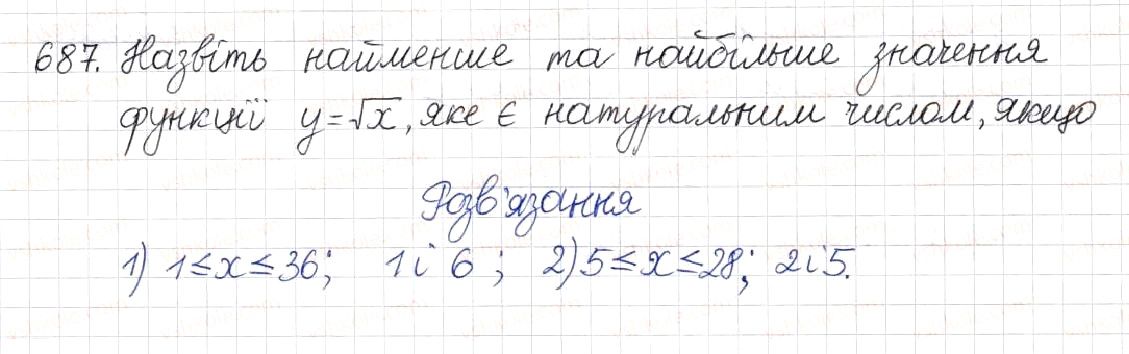 687. Назвіть найменше та найбільше значення
функції y=√x, яке є натуральним числом, якщо
Розв'язання
1) 1≤x≤36; 1 і 6; 2) 5≤x≤28; 2 і 5.